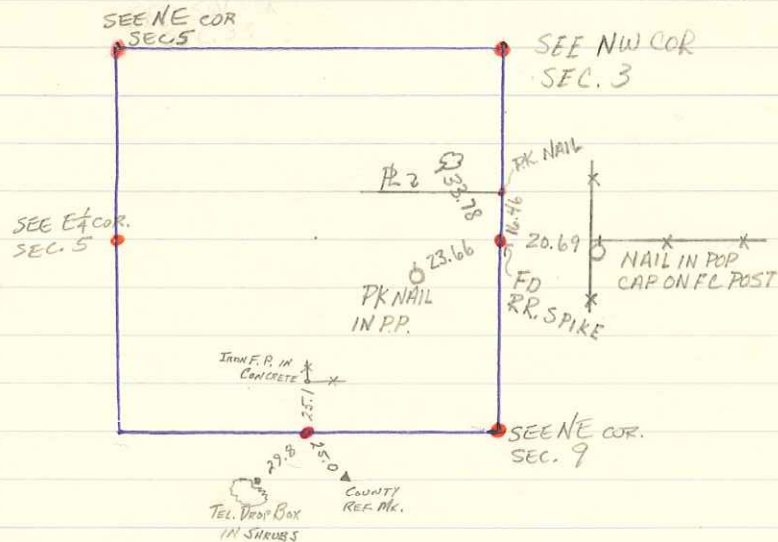 SEE NE COR
SEC. 5
SEE NW COR
SEC. 3
PK NAIL
33.78
16.46
SEE E¼ COR.
SEC. 5
23.66
20.69
NAIL IN POP
CAP ON FC POST
PK NAIL
IN P.P.
FD
RR. SPIKE
IRON F.P. IN
CONCRETE
25.1
SEE NE COR.
SEC. 9
29.8
25.0
COUNTY
REF. MK.
TEL. DROP BOX
IN SHRUBS